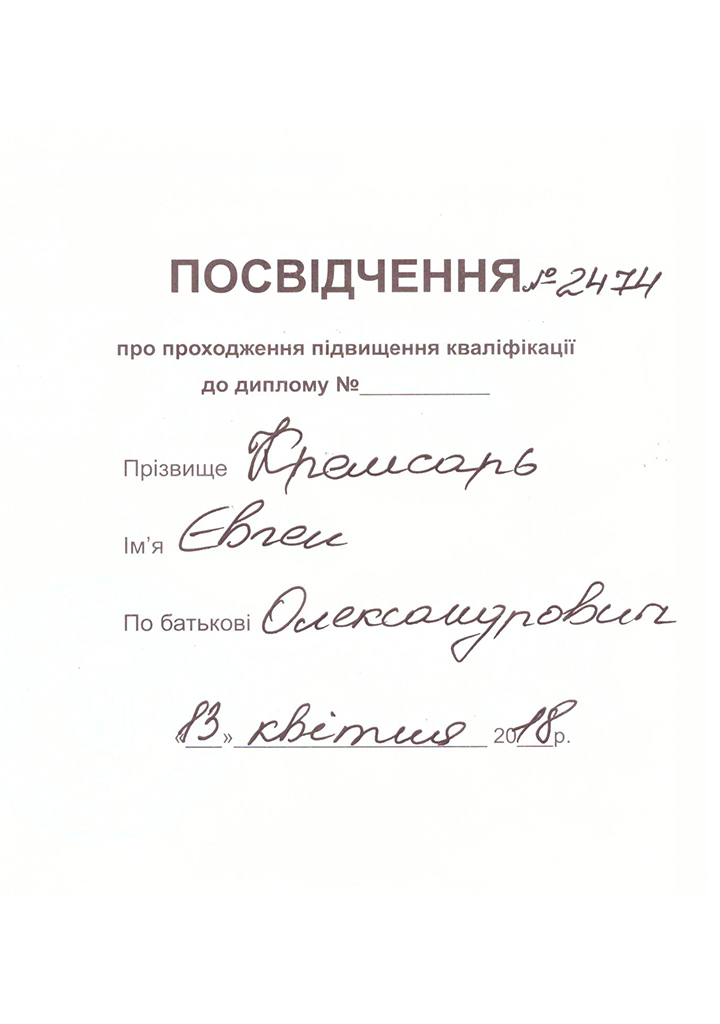 ПОСВІДЧЕННЯ № 2474
про проходження підвищення кваліфікації
до диплому №___________
Прізвище Кремсарь
Ім'я Євген
По батькові Олександрович
«13» квітня 2018р.